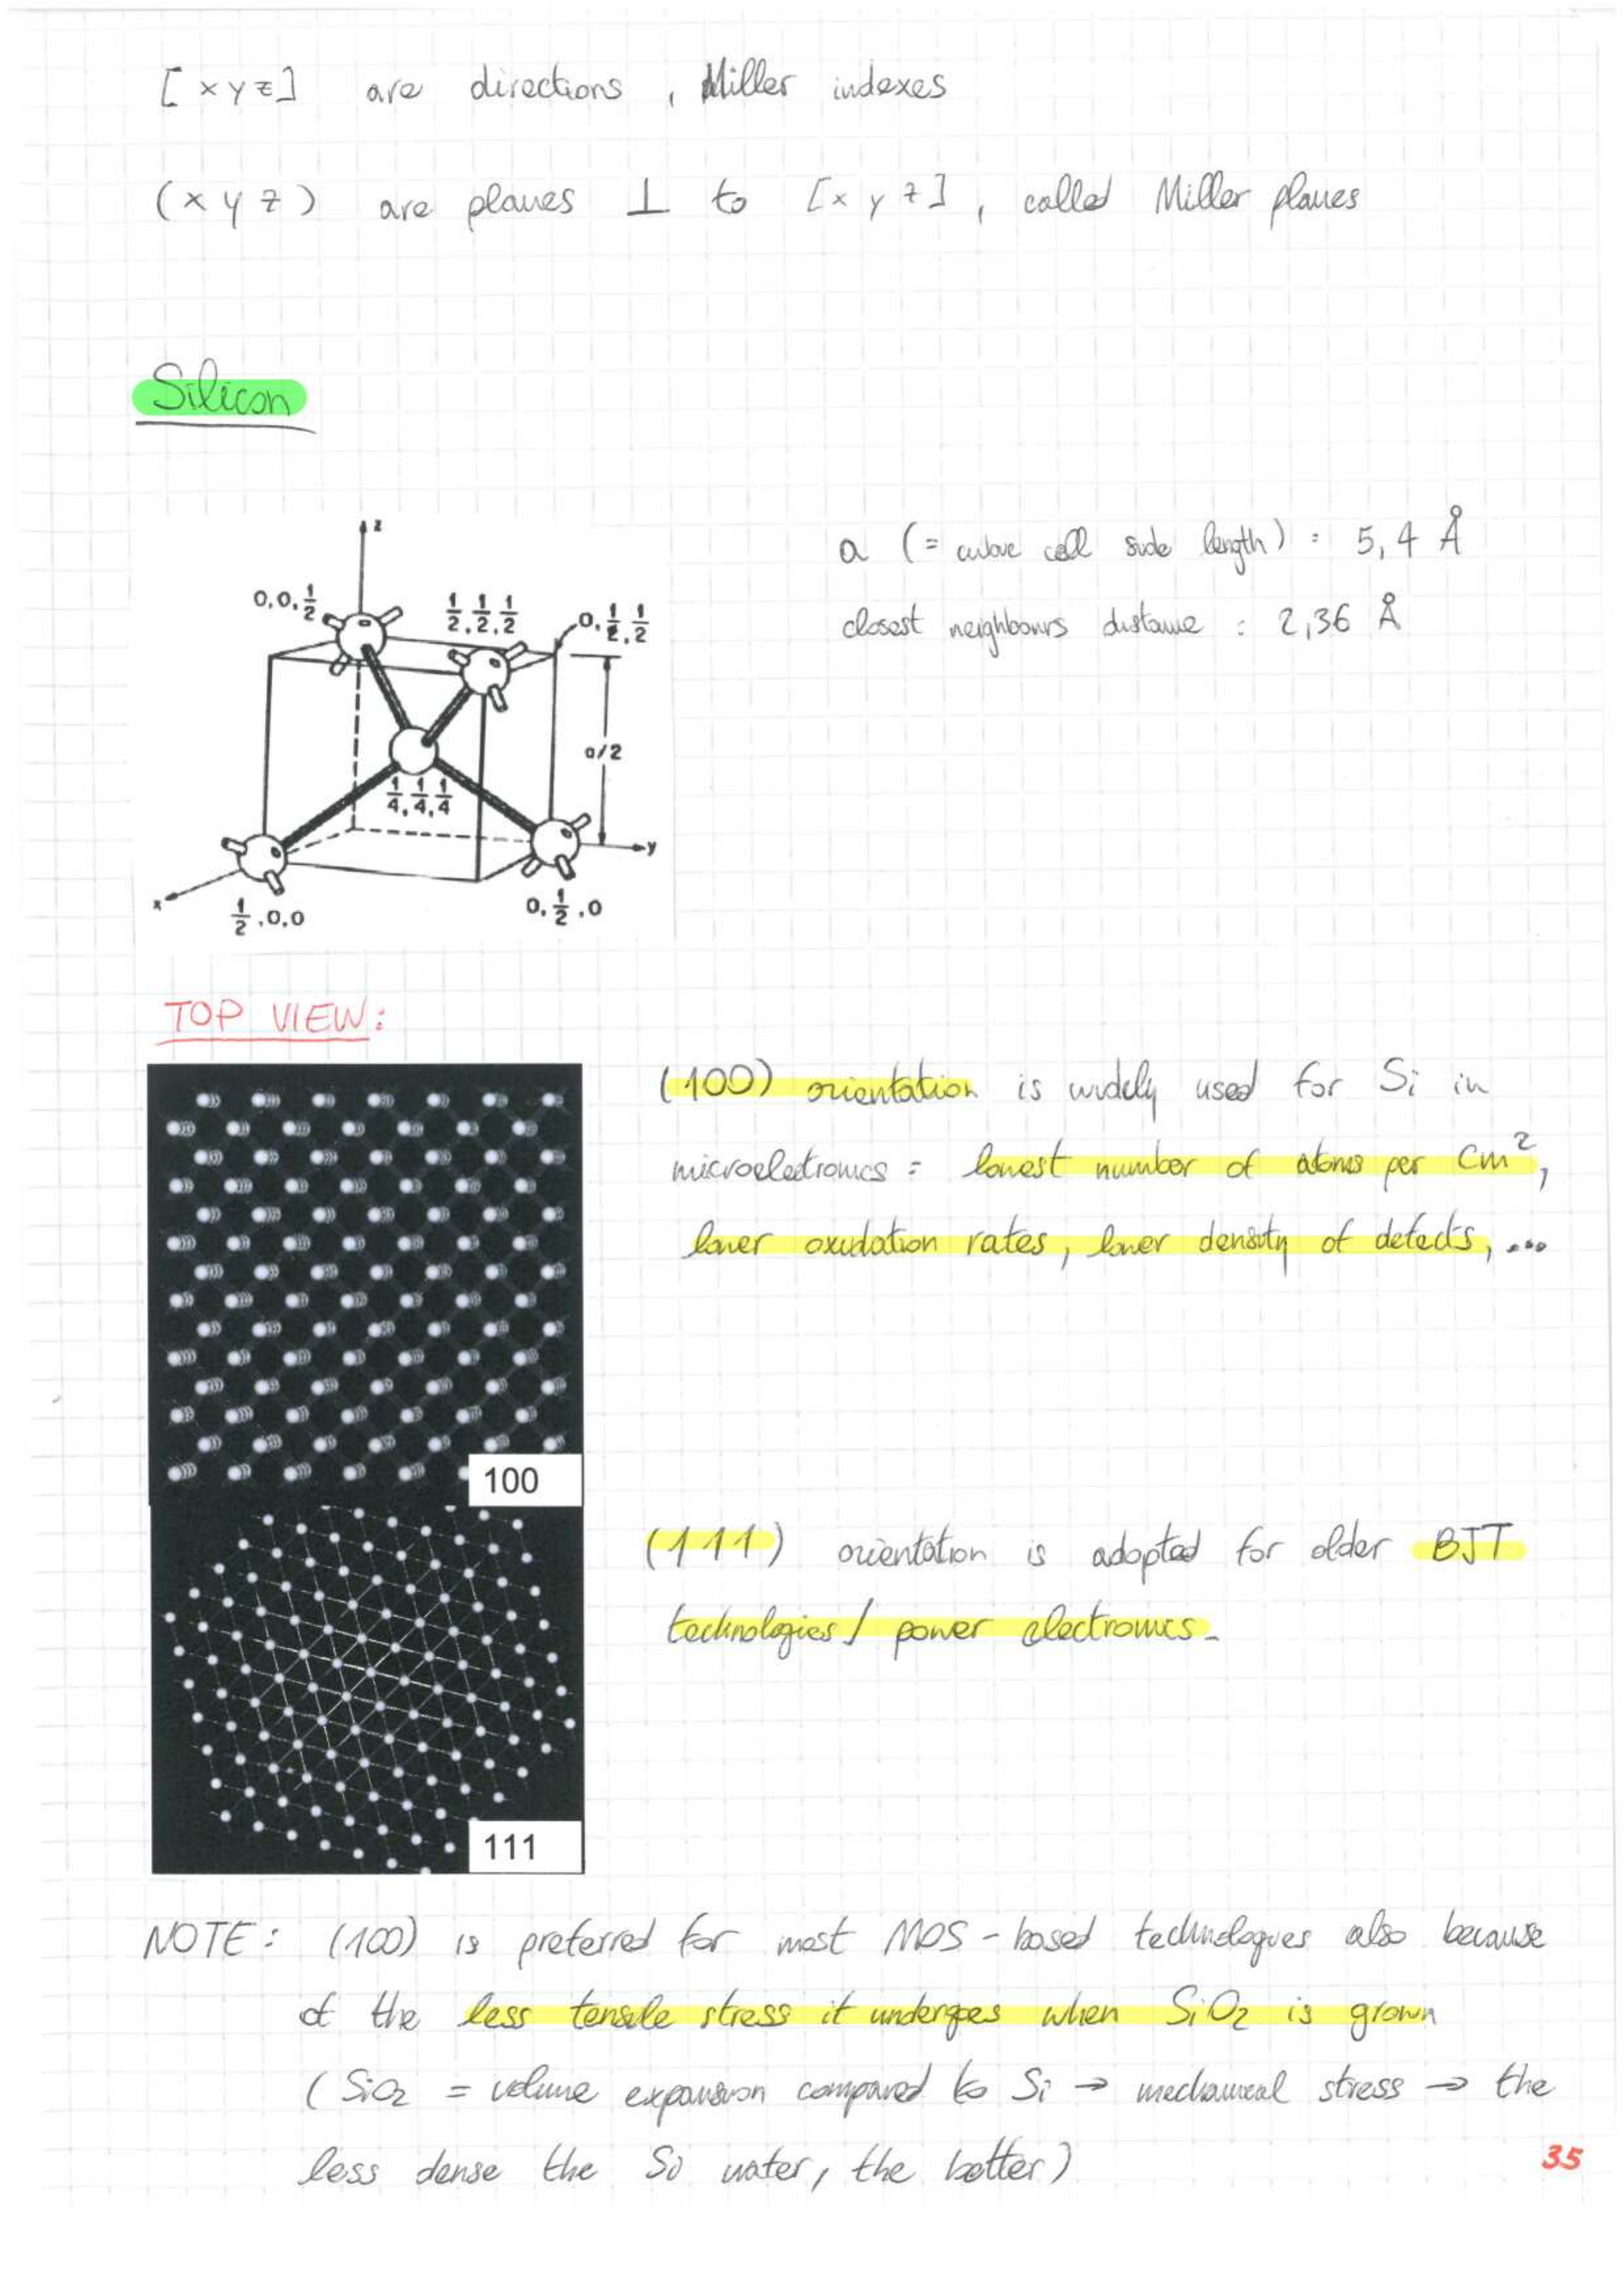 [x y z] are directions, Miller indexes
(x y z) are planes ⊥ to [x y z], called Miller planes
Silicon
z
0,0,1/2
1/2,1/2,1/2
0,1/2,1/2
a/2
1/4,1/4,1/4
y
x
1/2,0,0
0,1/2,0
a (= cube cell side length) = 5,4 Å
closest neighbours distance : 2,36 Å
TOP VIEW:
100
(100) orientation is widely used for Si in
microelectronics = lowest number of atoms per cm²,
lower oxidation rates, lower density of defects, ...
111
(111) orientation is adopted for older BJT
technologies / power electronics.
NOTE: (100) is preferred for most MOS-based technologies also because
of the less tensile stress it undergoes when SiO2 is grown
(SiO2 = volume expansion compared to Si → mechanical stress → the
less dense the Si water, the better)
35